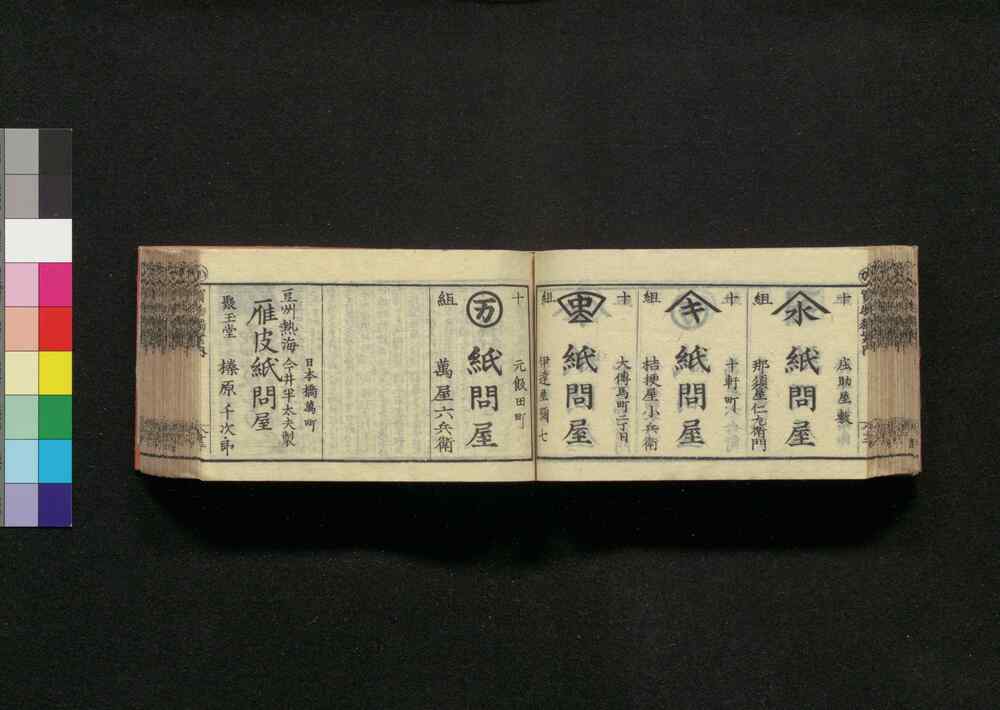 十 庄助屋敷
水 紙問屋
組 那須屋仁右衛門
十 十軒町
キ 紙問屋
組 桔梗屋小兵衛
十 大傳馬町二丁目
紙問屋
組 伊達屋彌七
十 元飯田町
万 紙問屋
組 萬屋六兵衛
日本橋萬町
豆州熱海 今井半太夫製
雁皮紙問屋
聚玉堂 榛原千次郎